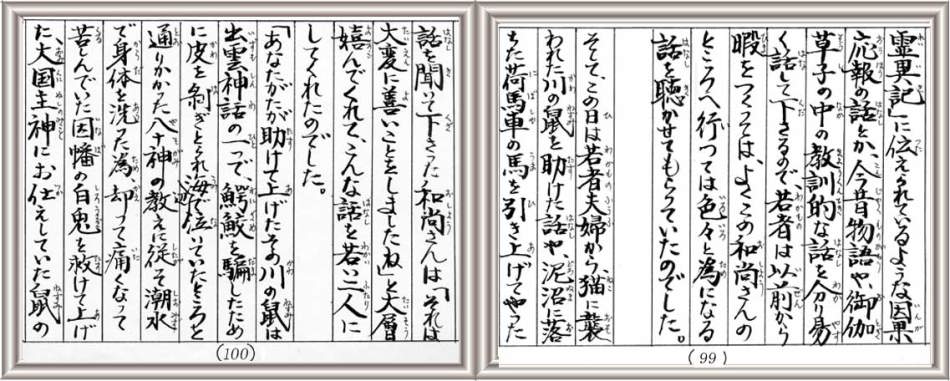 霊異記」に伝えられているような因果
応報の話とか、今昔物語や、御伽
草子の中の教訓的な話を分り易
く話して下さるので、若者は以前から
暇をつくっては、よくこの和尚さんの
ところへ行っては色々と為になる
話を聴かせてもらっていたのでした。
そして、この日は若者夫婦から、猫に襲
われた川の鼠を助けた話や、泥沼に落
ちた荷馬車の馬を引き上げてやった
(99)
話を聞いて下さった和尚さんは「それは
大変に善いことをしましたね」と大層
嬉んでくれて、こんな話を若い二人に
してくれたのでした。
「あなたがたが助けて上げたその川の鼠は
出雲神話の一つで、鰐鮫を騙したため
に皮を剥ぎとられ海辺で泣いていたところを
通りかかった八十神の教えに従って潮水
で身体を洗った為、却って痛くなって
苦しんでいた因幡の白兎を救けて上げ
た、大国主神にお仕えしていた鼠の
(100)